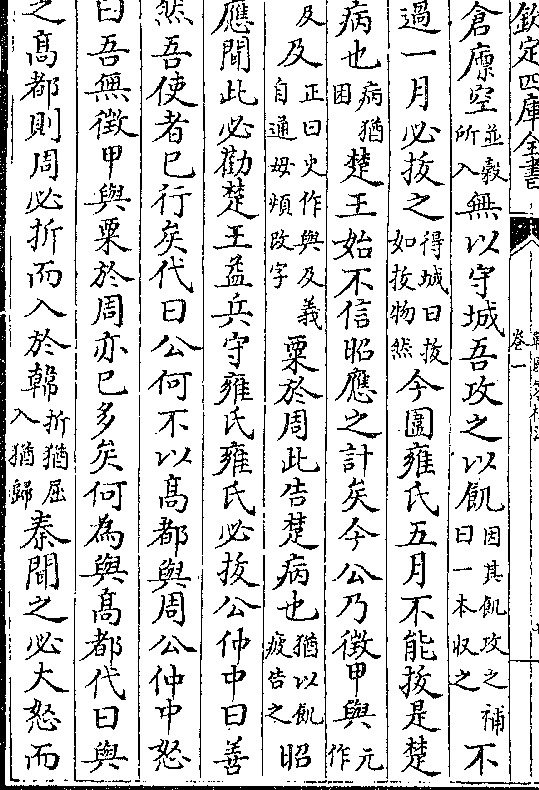 欽定四庫全書
卷一
倉廩空並穀所入無以守城吾攻之以飢因其飢攻之補曰一本収之不
過一月必抜之得城曰抜如抜物然今圍雍氏五月不能抜是楚
病也病猶困楚王始不信昭應之計矣今公乃徴甲與元作
及及正曰史作與及義自通毋煩改字粟於周此告楚病也猶以飢疲告之昭
應聞此必勸楚王益兵守雍氏雍氏必抜公仲中曰善
然吾使者已行矣代曰公何不以髙都與周公仲中怒
曰吾無徴甲與粟於周亦已多矣何為與髙都代曰與
之髙都則周必折而入於韓折猶屈入猶歸秦聞之必大怒而